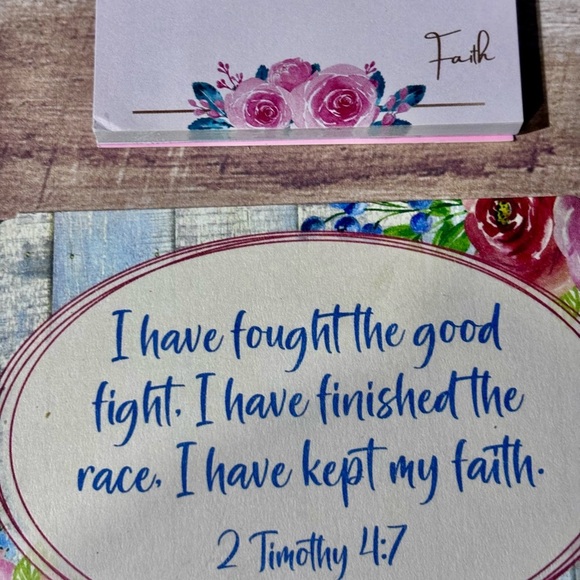 Faith
I have fought the good
fight. I have finished the
race. I have kept my faith.
2 Timothy 4:7